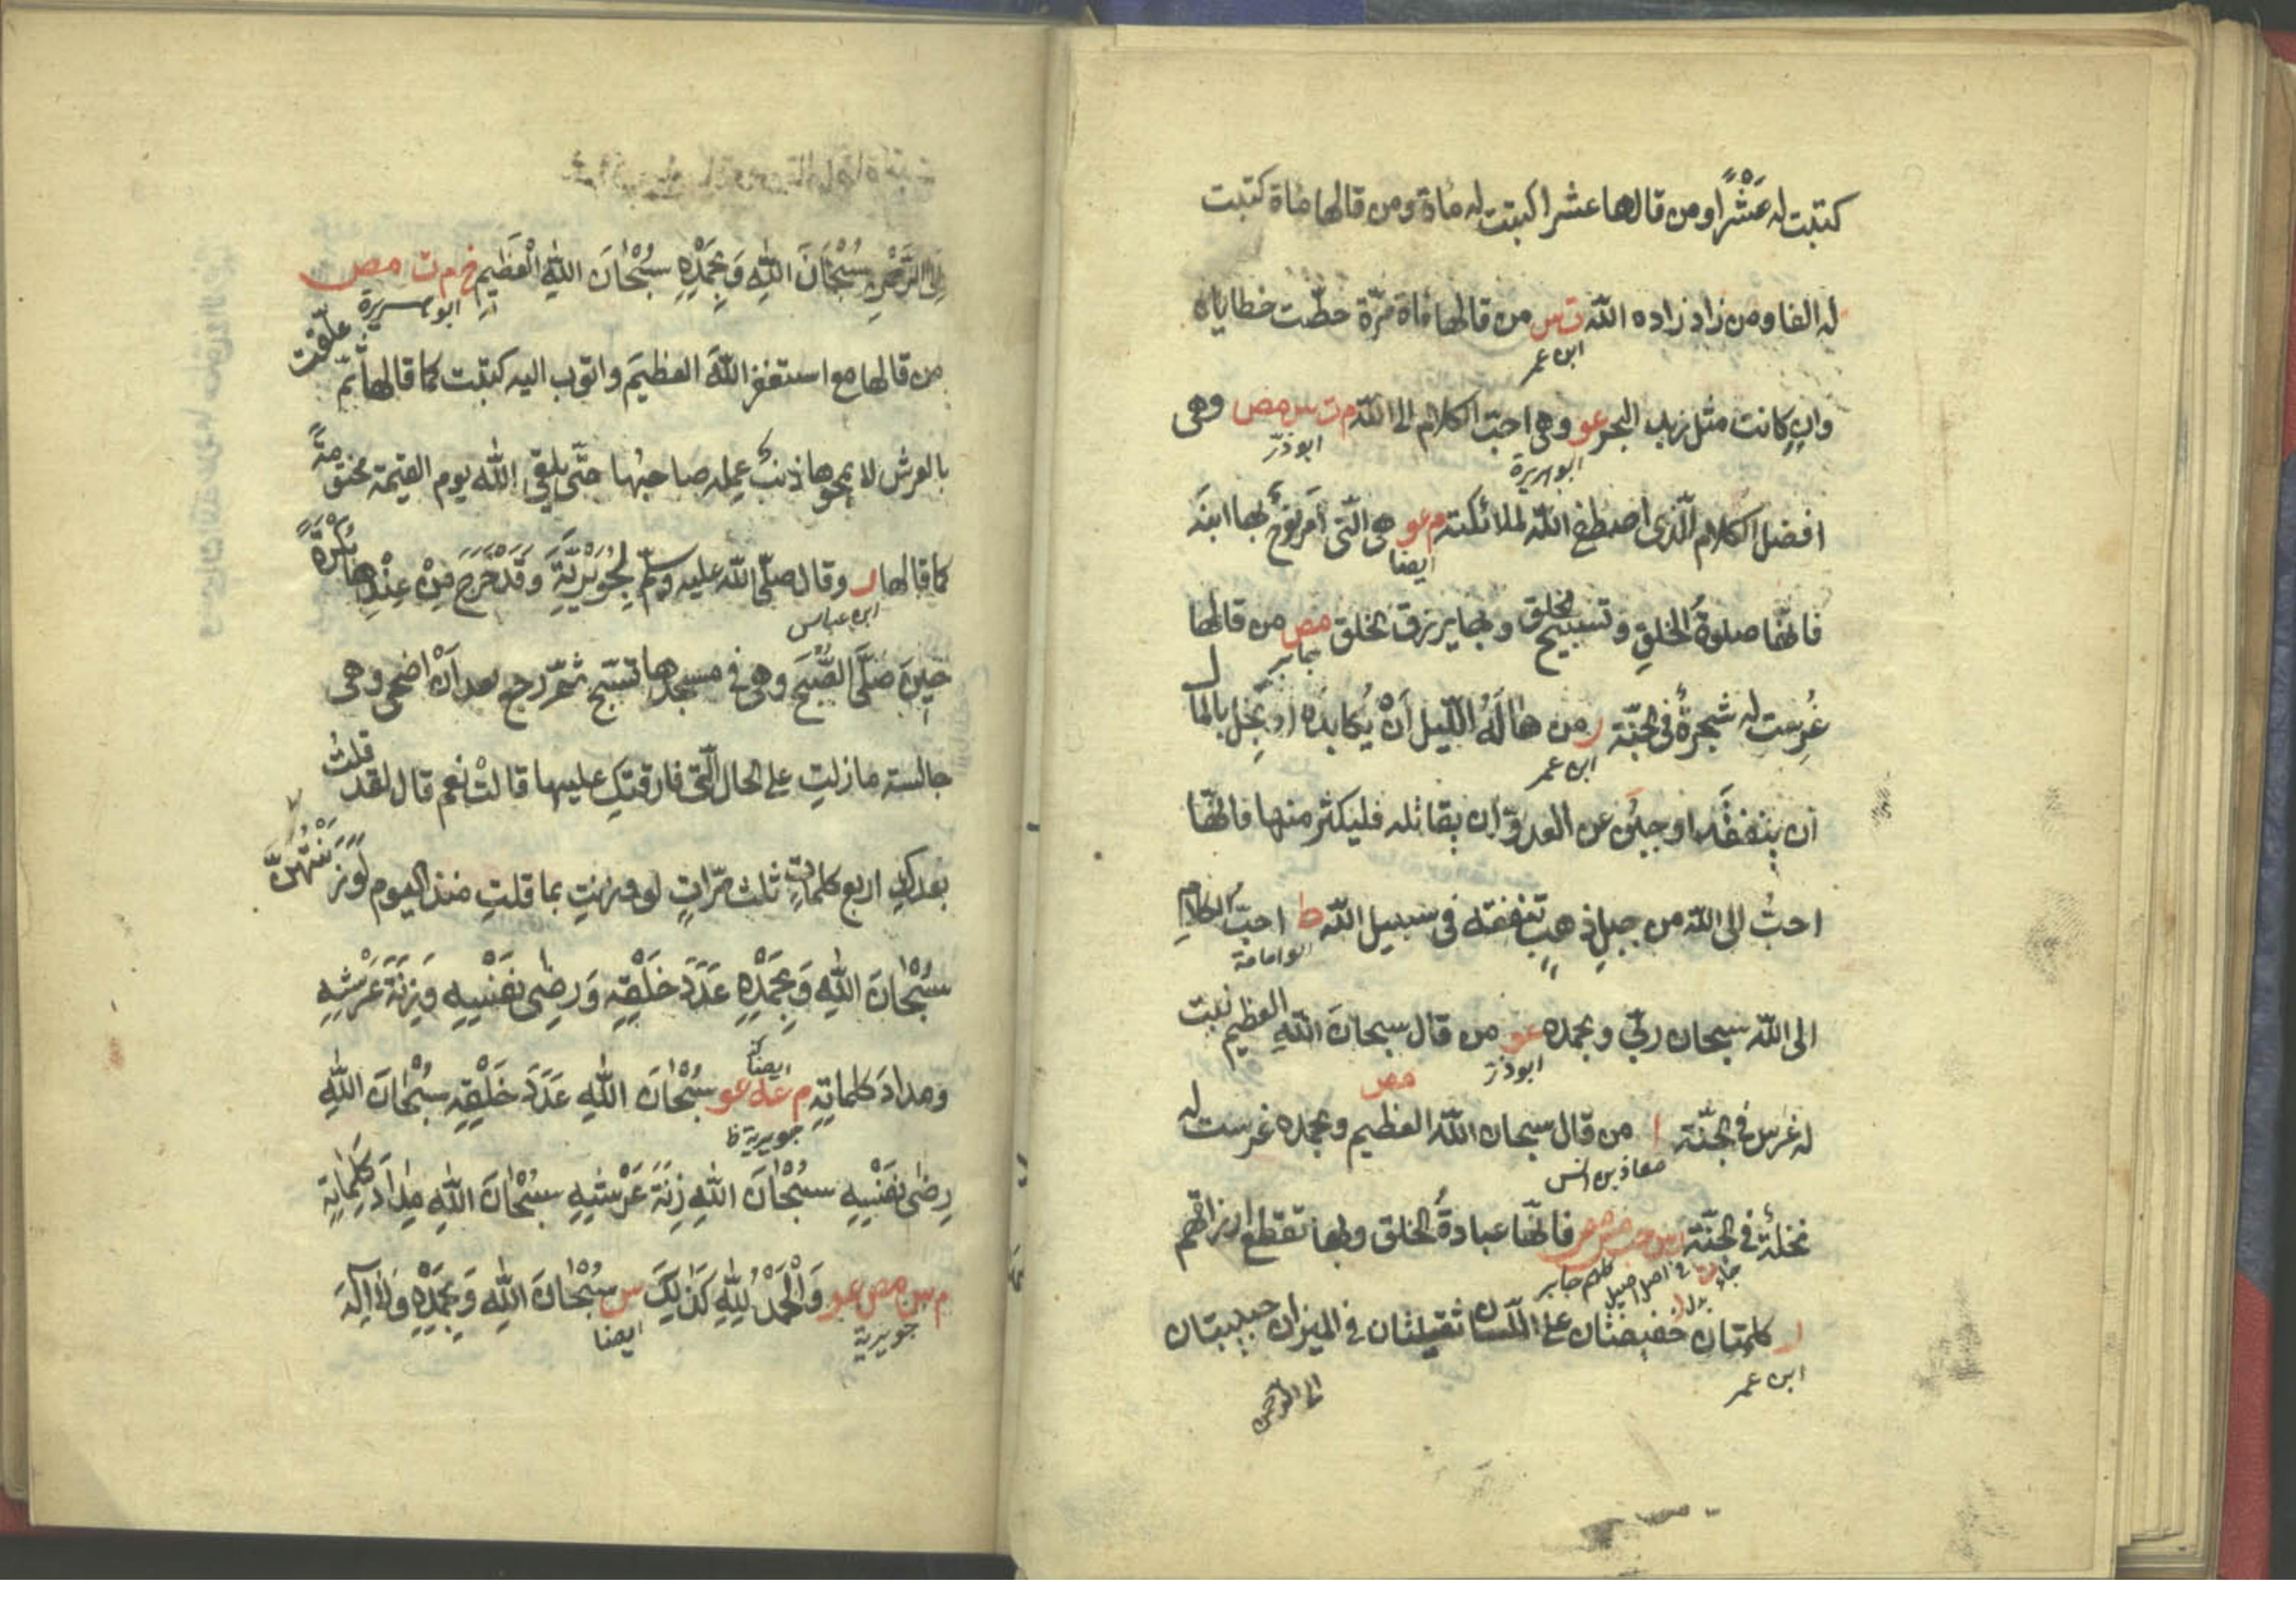 كتبت له عَشْرًا ومن قالها عشرا كبتت له مأة ومن قالها مأة كتبت
له الفا ومن زاد زاده الله ت س من قالها مأة مرّة حطّت خطاياه
ابن عمر
وان كانت مثل زبد البحر عو وهى احبّ الكلام الى الله م ت س مص وهى
ابو هريرة ابوذرّ
افضل الكلام الّذى اصطفى الله لملائكته م عو هى الّتى امر نوحٌ بها ابنَه
ايضا
فانّها صلوةُ الخلقِ وتسبيح الخلق وبها يرزق الخلق مص من قالها
جابر
غُرست له شجرةٌ فى الجنّة ر من هَالَهُ اللّيل اَنْ يُكابدَه او بَخِل بالمال
ابن عمر
ان ينفقَه او جبُن عن العدوّ ان يقاتله فليكثر منها فانّها
احبُّ الى الله من جبلِ ذهبٍ تنفقه فى سبيل الله ط احبّ الكلامِ
ابو امامة
الى الله سبحان ربّي وبحمده عو من قال سبحانَ اللهِ العظيمِ نبت
ابوذر
له غرس فى الجنّة ا من قال سبحان الله العظيم وبحمده غرست له
مص
معاذ بن انس
نخلةٌ فى الجنّة فانّها عبادةُ الخلق وبها تقطع ارزاقهم
جابر
ر كلمتان خفيفتان على اللّسان ثقيلتان فى الميزان حبيبتان
ابن عمر
الى الرحمن
اِلَى الرَّحْمٰنِ سُبْحَانَ اللّٰهِ وَبِحَمْدِهِ سُبْحَانَ اللّٰهِ الْعَظِيمِ خ م ت مص
ابو هريرة
من قالها مع استغفر اللهَ العظيمَ واتوب اليه كتبت كما قالها ثمّ علّقت
بالعرش لا يمحوها ذنبٌ عمله صاحبُها حتّى يلقى الله يوم القيمة مختومةً
كما قالها ر وقال صلّى الله عليه وسلّم لِجُوَيْرِيَةَ وَقَدْ خَرَجَ مِنْ عِنْدِهَا بُكْرَةً
ابن عباس
حِينَ صَلَّى الصُّبْحَ وهى فى مسجدها تسبّح ثمّ رجع بعد اَنْ اضحى وهى
جالسة ما زلتِ على الحال الّتى فارقتكِ عليها قالتْ نعم قال لقد قلتُ
بعدكِ اربع كلماتٍ ثلث مرّاتٍ لو وزنت بما قلتِ منذ اليوم لَوَزَنَتْهُنَّ
سُبْحَانَ اللّٰهِ وَبِحَمْدِهِ عَدَدَ خَلْقِهِ وَرِضٰى نَفْسِهِ وَزِنَةَ عَرْشِهِ
ومدادَ كلماتِهِ م عه عو سُبْحَانَ اللّٰهِ عَدَدَ خَلْقِهِ سُبْحَانَ اللّٰهِ
ايضا
جويرية
رِضٰى نَفْسِهِ سُبْحَانَ اللّٰهِ زِنَةَ عَرْشِهِ سُبْحَانَ اللّٰهِ مِدَادَ كَلِمَاتِهِ
م س مص عو وَالْحَمْدُ لِلّٰهِ كَذٰلِكَ س سُبْحَانَ اللّٰهِ وَبِحَمْدِهِ وَلَا اِلٰهَ
جويرية ايضا